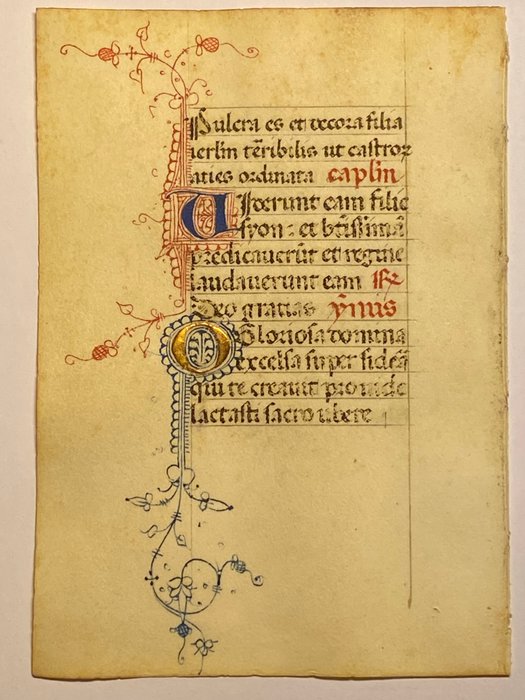 Pulcra es et decora filia
ierlm teribilis ut castror
aties ordinata caplm
Viderunt eam filie
syon : et btissimā
predicaverūt et regine
laudaverunt eam R
Deo gratias ymus
O Gloriosa domina
excelsa super sidera
qui te creavit provide
lactasti sacro ubere